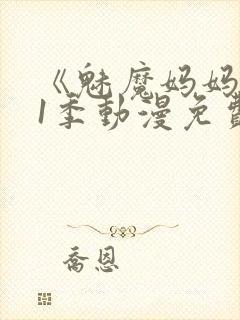 《魅魔妈妈
1季動漫免費
喬恩